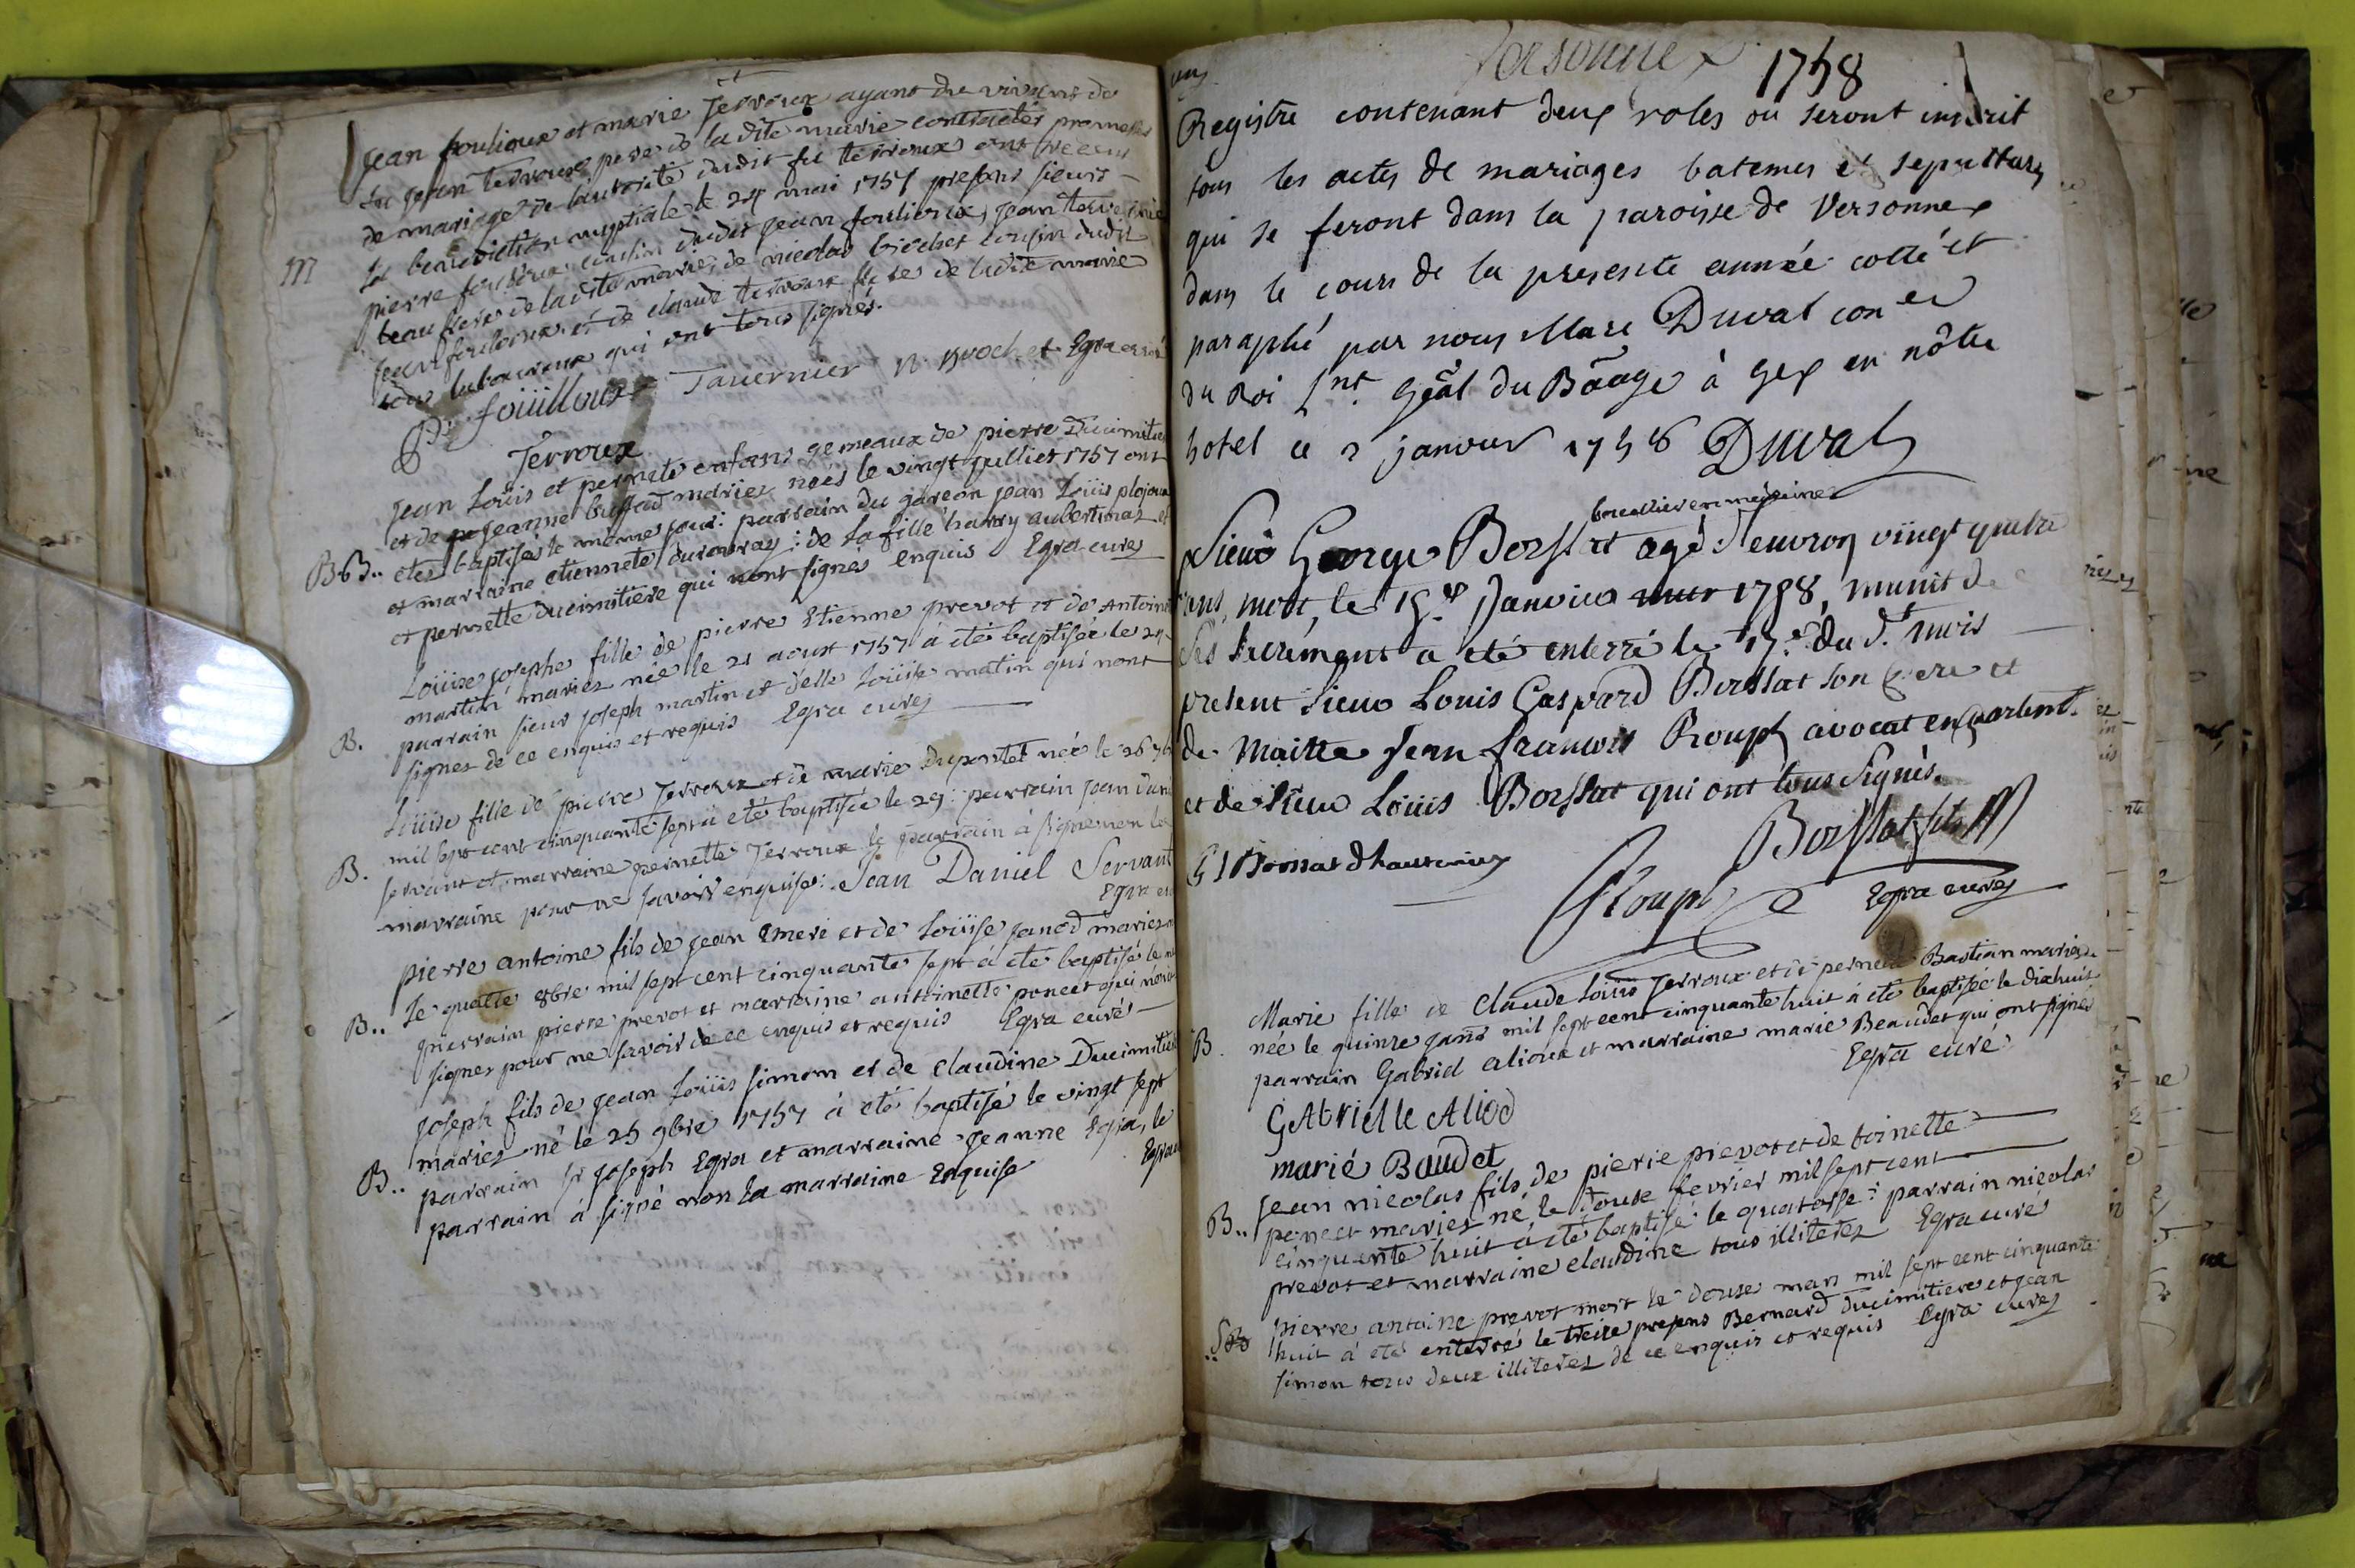 Jean foulioux et marie Terroux ayant du vivant de
feu jean terroux pere de la dite marie contractés promesses
de mariage de l'autorité dudit fu terroux ont reçeus
la benediction nuptiale le 24 mai 1757 presens sieurs
M
pierre foulioux cousin dudit jean foulioux, jean
beau frere de la dite marie, de nicolas brochet cousin dudit
jean foulioux et de claude terroux frere de ladite marie
tous laboureurs qui ont tous signés.
P. foüilloux Tavernier N Brochet Egra curé
Terroux
jean Loüis et pernete enfans gemeaux de pierre Ducimitie
et de jeanne buffad mariez nées le vingt juilliet 1757 ont
BB.. etes baptisés le meme jour: parrain du garçon jean Loüis
et marraine etiennete : de la fille
et pernette ducimitiere qui nont signés enquis Egra curez
Loüise josephe fille de pierre Etienne prevot et de Antoin
martin mariez née le 21 aoust 1757 à eté baptisée le
B. parrain sieur joseph martin et delle Loüise matin qui nont
signes de ce enquis et requis Egra curez
Loüise fille de pierre Terroux et de marie Dupontet née le 26
mil sept cent cinquante sept à eté baptisée le 29: parrain jean
B. servant et marraine pernette Terroux le parrain à signé non la
marraine pour ne savoir enquise: Jean Daniel Servant
Egra
pierre antoine fils de jean Emeri et de Loüise janod mariez
le quatre 8bre mil sept cent cinquante sept à eté baptisé le
B.. parrain pierre prevot et marraine antoinette poncet qui nont
signes pour ne savoir de ce enquis et requis Egra curé
Joseph fils de jean Loüis simon et de claudine Ducimitie
mariez né le 25 9bre 1757 à eté baptisé le vingt sept
B.. parrain sr joseph Egra et marraine jeanne Egra, le
parrain à signé non la marraine Enquise
Versonnex 1758
Registre contenant deux roles ou seront inscrit
tous les actes de mariages batemes et sepultures
qui se feront dans la paroisse de Versonnex
dans le cours de la presente année cotté et
paraphé par nous Marc Duval con er
du Roi Lnt. Gãl du Bãage à Gex en nôtre
hotel ce 2 janvier 1758 Duval
baccallier en medecine
Sieur George Borssat agé d'environ vingt quatre
ans, mort, le 15.e Janvier 1758, munit de
ses Sacrémens a eté enterré le 17.e du d.t mois
present sieur Louis Gaspard Borssat son frere et
de Maitre Jean francois Rouph avocat en parlemt.
et de sieur Loüis Borssat qui ont tous signés.
Borssat fils
Rouph
Egra curez
Marie fille de Claude Loüis Terroux et de pernete Bastian mariez
B. née le quinze janr mil sept cent cinquante huit à eté baptisée le dixhuit
parrain Gabriel alioux et marraine marie Beaudet qui ont signés
Egra curé
GAbrielle Aliod
marié Baudet
B.. Jean nicolas fils de pierre prevot et de toinette
poncet mariez né le douse fevrier mil sept cent
cinquante huit à eté baptisé le quatorse: parrain nicolas
prevot et marraine claudine tous illiterez Egra curés
pierre antoine prevot mort le douse mars mil sept cent cinquante
huit à eté enterré le treize presens Bernard ducimitiere et jean
simon tous deux illiterez de ce enquis et requis Egra curez